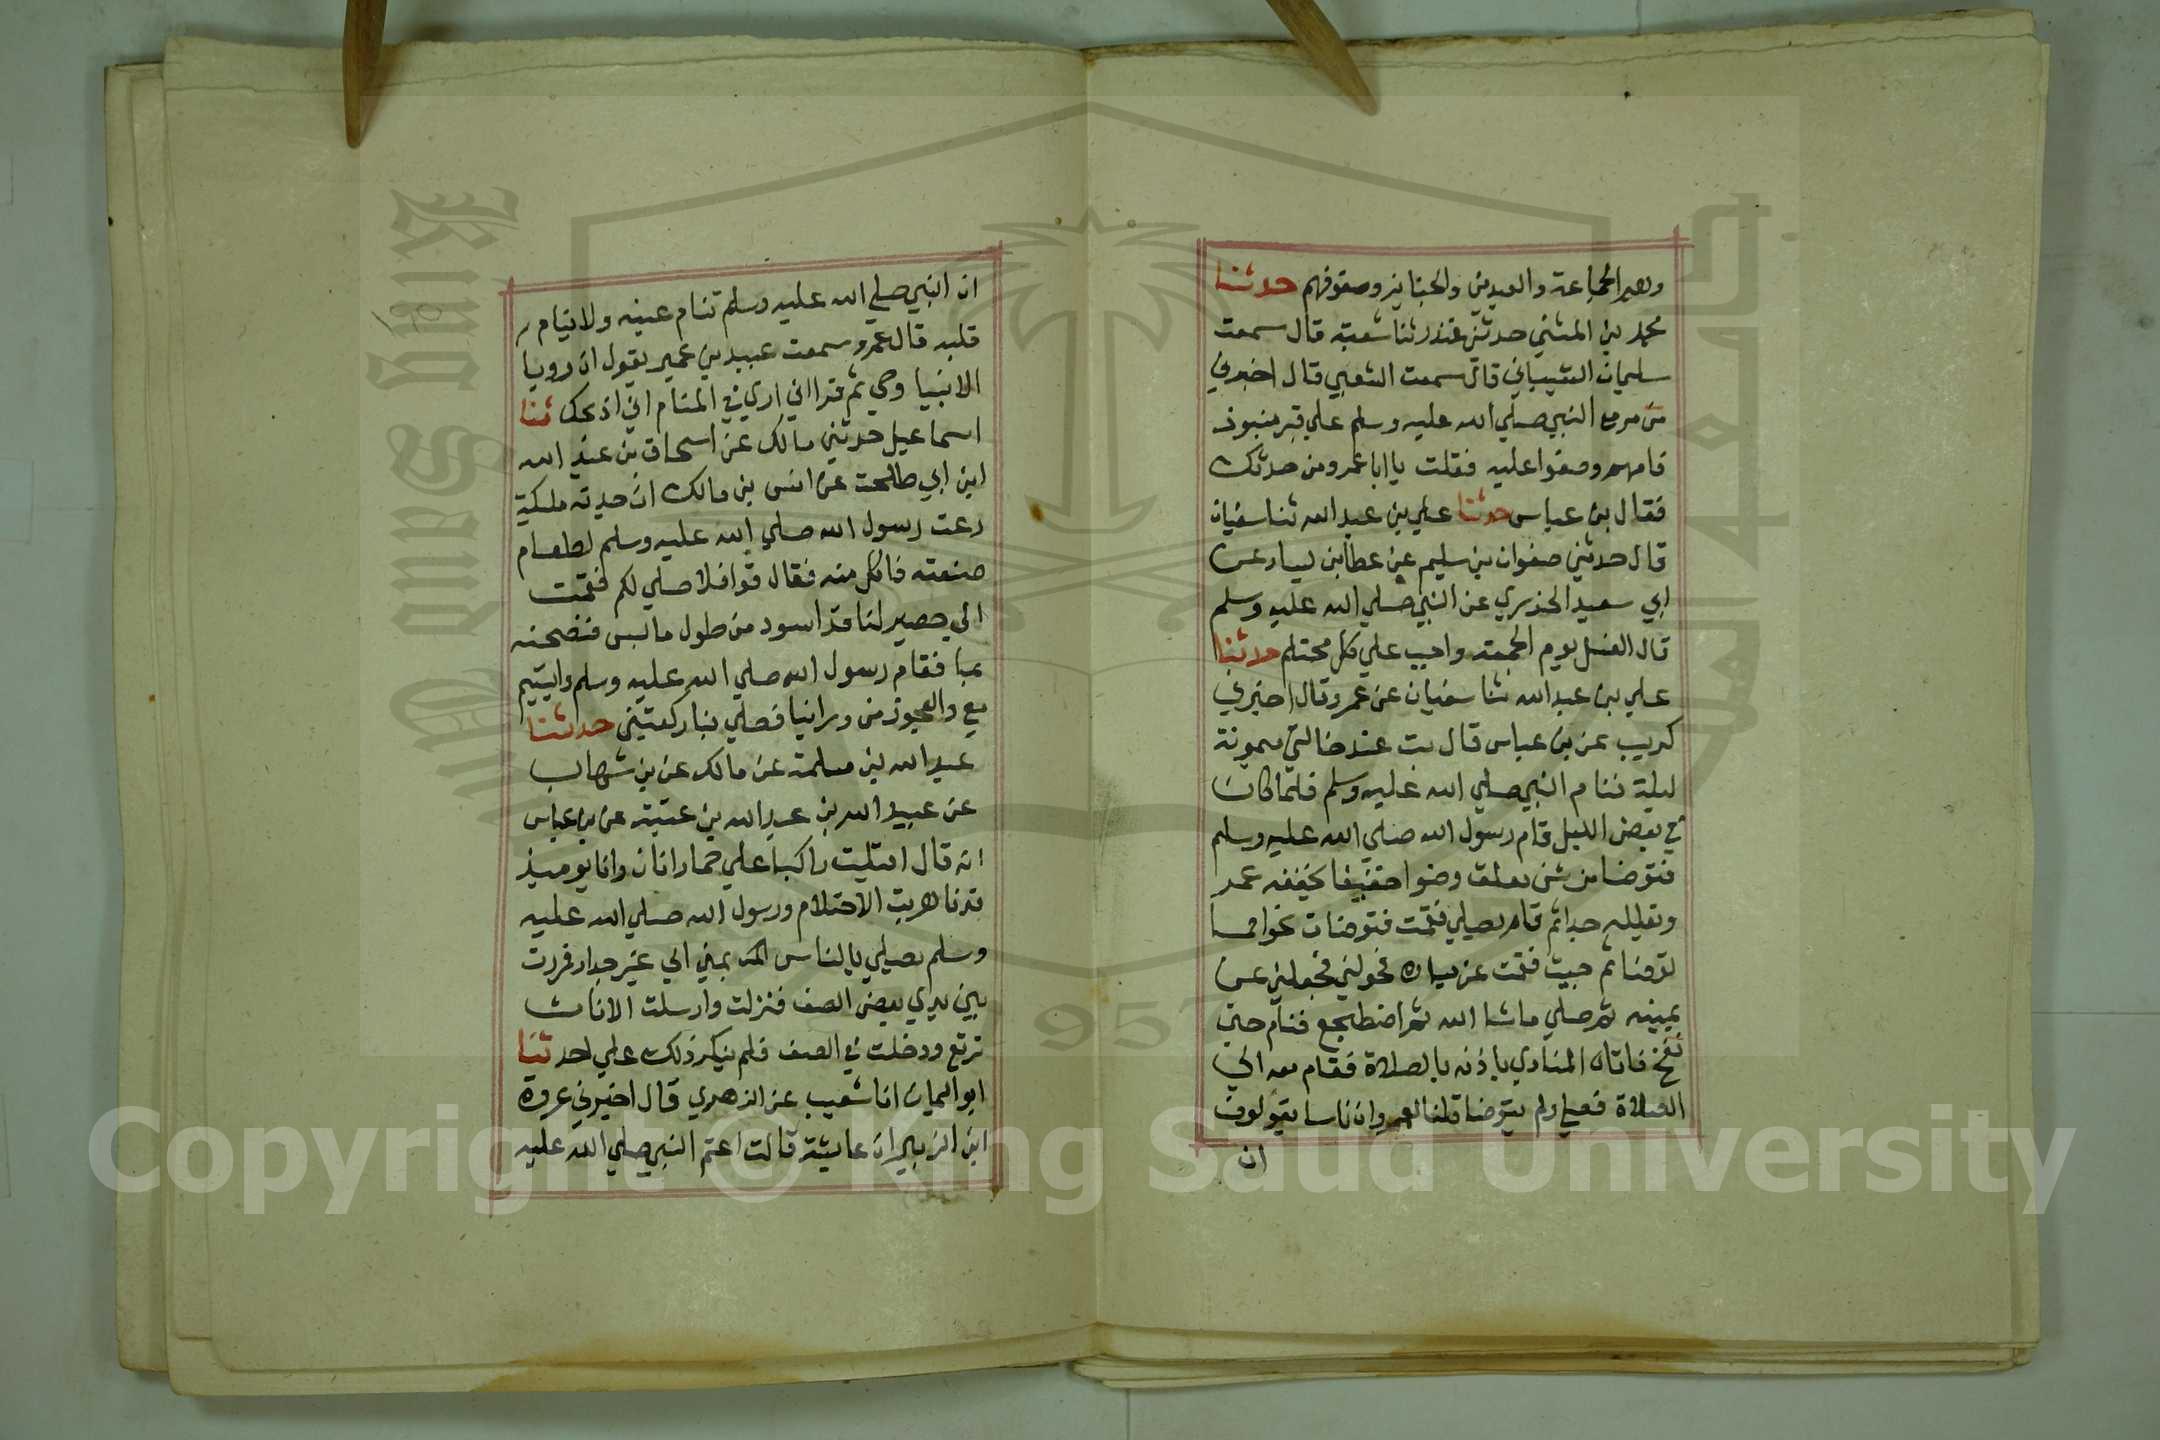 وحضورهم الجماعة والعيدين والجنايز وصفوفهم حدثنا
محمد بن المثني حدثني غندر ثنا شعبة قال سمعت
سليمان الشيباني قال سمعت الشعبي قال اخبرني
من مر مع النبي صلي الله عليه وسلم علي قبر منبوذ
فامهم وصفوا عليه فقلت يا ابا عمرو من حدثك
فقال بن عباس حدثنا علي بن عبد الله ثنا سفيان
قال حدثني صفوان بن سليم عن عطا بن يسار عن
ابي سعيد الخدري عن النبي صلي الله عليه وسلم
قال الغسل يوم الجمعة واجب علي كل محتلم حدثنا
علي بن عبد الله ثنا سفيان عن عمرو قال اخبرني
كريب عن بن عباس قال بت عند خالتي ميمونة
ليلة فنام النبي صلي الله عليه وسلم فلما كان
في بعض الليل قام رسول الله صلي الله عليه وسلم
فتوضا من شن معلق وضوا خفيفا يخففه عمر
ويقلله جدا ثم قام يصلي فقمت فتوضات نحوا مما
توضا ثم جيت فقمت عن يساره فحولني فجعلني عن
يمينه ثم صلي ما شا الله ثم اضطجع فنام حتي
نفخ فاتاه المنادي ياذنه بالصلاة فقام معه الي
الصلاة فصلي ولم يتوضا قلنا لعمرو ان ناسا يقولون
ان
ان النبي صلي الله عليه وسلم تنام عينه ولا ينام
قلبه قال عمرو سمعت عبيد بن عمير يقول ان رويا
الانبيا وحي ثم قرا اني اري في المنام اني اذبحك ثنا
اسماعيل حدثني مالك عن اسحاق بن عبد الله
ابن ابي طلحة عن انس بن مالك ان جدته مليكة
دعت رسول الله صلي الله عليه وسلم لطعام
صنعته فاكل منه فقال قوا فلا صلي لكم فقمت
الي حصير لنا قد اسود من طول ما لبس فنضحته
بما فقام رسول الله صلي الله عليه وسلم واليتيم
معي والعجوز من وراينا فصلي بنا ركعتين حدثنا
عبد الله بن مسلمة عن مالك عن بن شهاب
عن عبيد الله بن عبد الله بن عتبة عن بن عباس
انه قال اقبلت راكبا علي حمار اتان وانا يوميذ
قد ناهزت الاحتلام ورسول الله صلي الله عليه
وسلم يصلي بالناس بمني الي غير جدار فمررت
بين يدي بعض الصف فنزلت وارسلت الاتان
ترتع ودخلت في الصف فلم ينكر ذلك علي احد ثنا
ابو اليمان انا شعيب عن الزهري قال اخبرني عروة
ابن الزبير ان عايشة قالت اعتم النبي صلي الله عليه
Copyright © King Saud University
King Saud University
1957